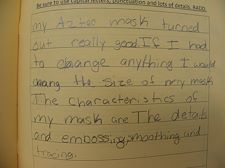 Be sure to use capital letters, punctuation and lots of details. RADD.
my Aztec mask turned
out really good.If I had
to chaange anything I would
chang the size of my mask
The characteristics of
my mask are The details
and embossing, smoothing and
tracing.